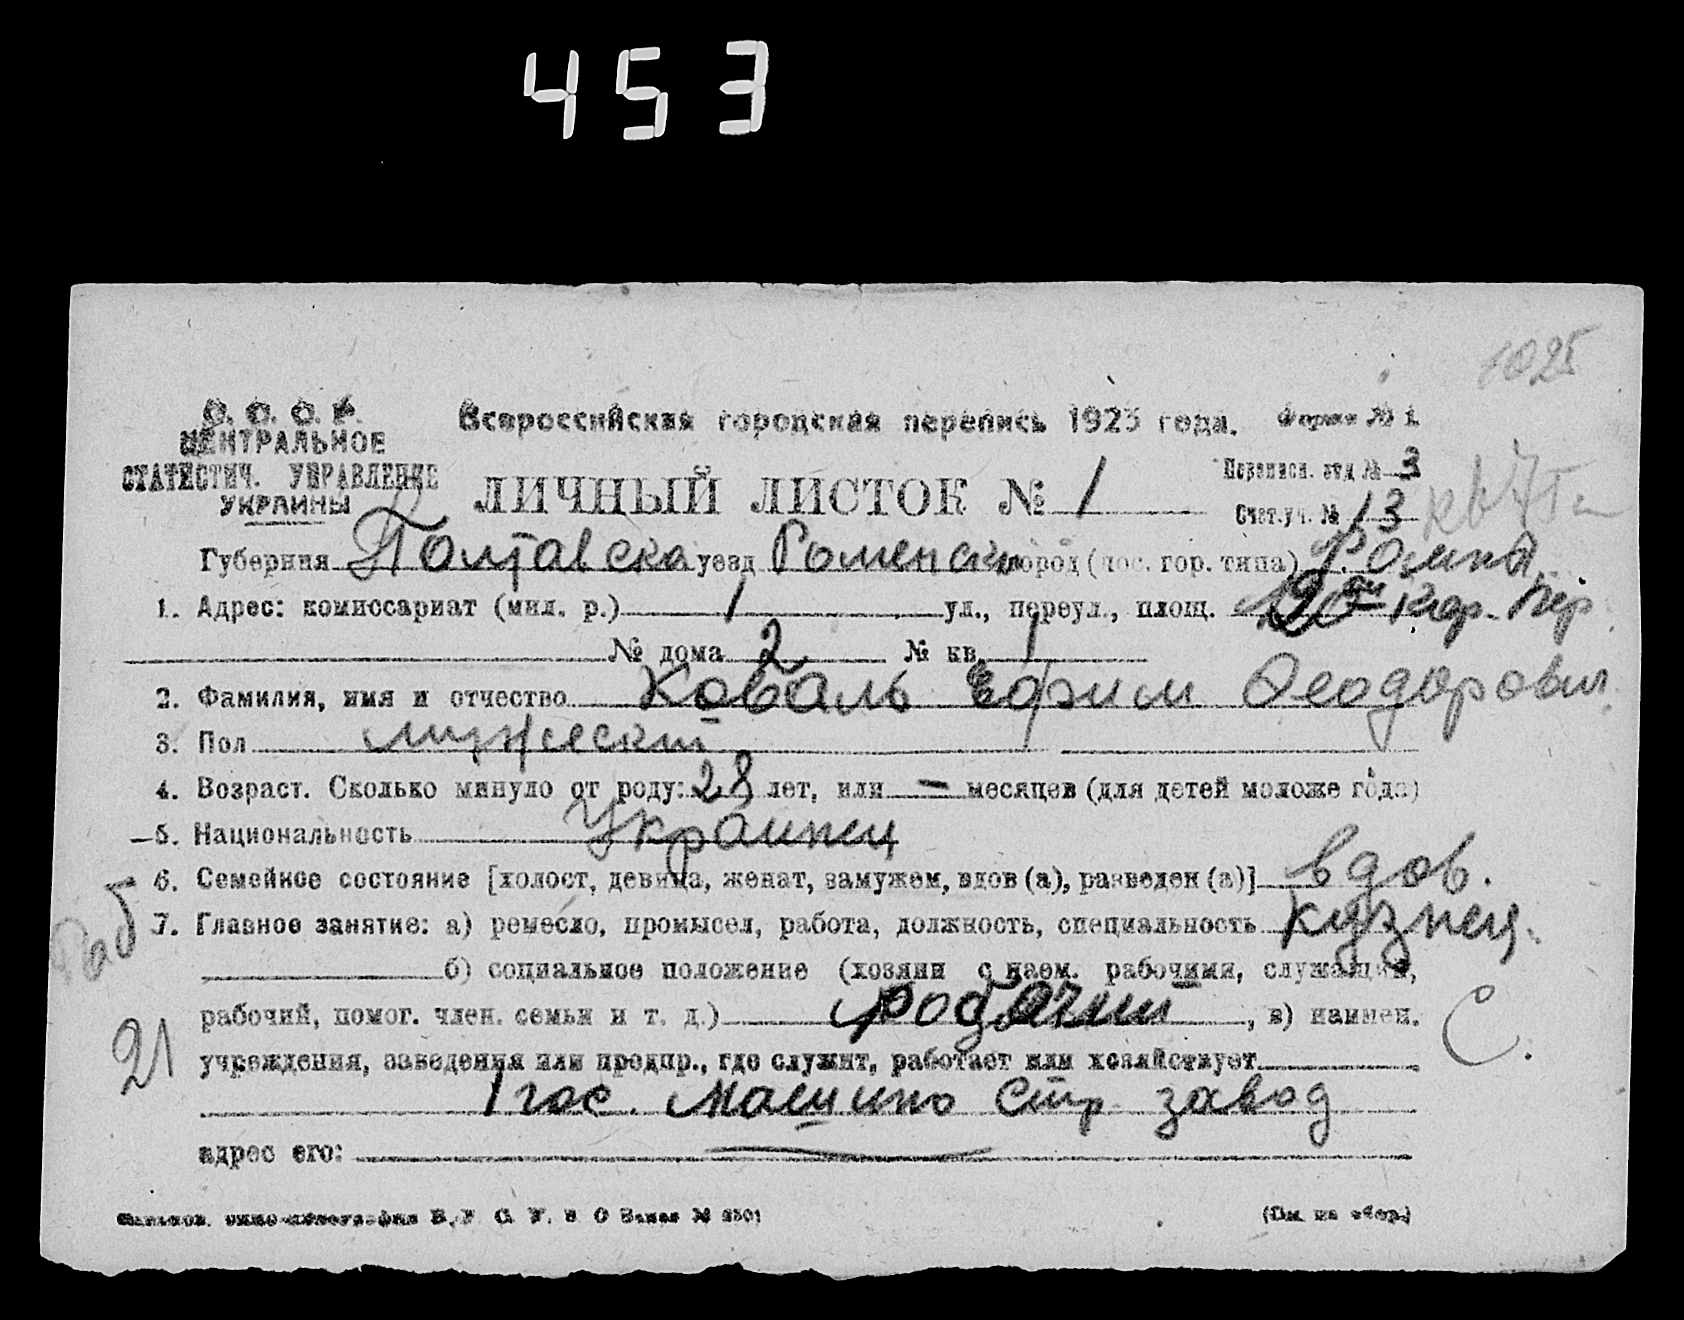 453
1025
С. С. С. Р.
Всероссийская городская перепись 1923 года.
Форма № 1.
ЦЕНТРАЛЬНОЕ
СТАТИСТИЧ. УПРАВЛЕНИЕ
УКРАИНЫ
ЛИЧНЫЙ ЛИСТОК № 1
Переписн. отд № 3
Счет. уч. № 13
Губерния Полтавска уезд Роменский город (пос. гор. типа) Ромны
1. Адрес: комиссариат (мил. р.) 1 ул., переул., площ. пер
№ дома 2 № кв. 1
2. Фамилия, имя и отчество Коваль Ефим Феодорович
3. Пол мужеский
4. Возраст. Сколько минуло от роду: 28 лет, или — месяцев (для детей моложе года)
5. Национальность Украинец
6. Семейное состояние [холост, девица, женат, замужем, вдов (а), разведен (а)] вдов.
Раб
7. Главное занятие: а) ремесло, промысел, работа, должность, специальность Кузнец.
б) социальное положение (хозяин с наем. рабочими, служащий,
рабочий, помог. член. семьи и т. д.) робочий, в) наимен.
21
С.
учреждения, заведения или предпр., где служит, работает или хозяйствует
1 гос. Машино Стр. завод
адрес его:
(См. на обор.)